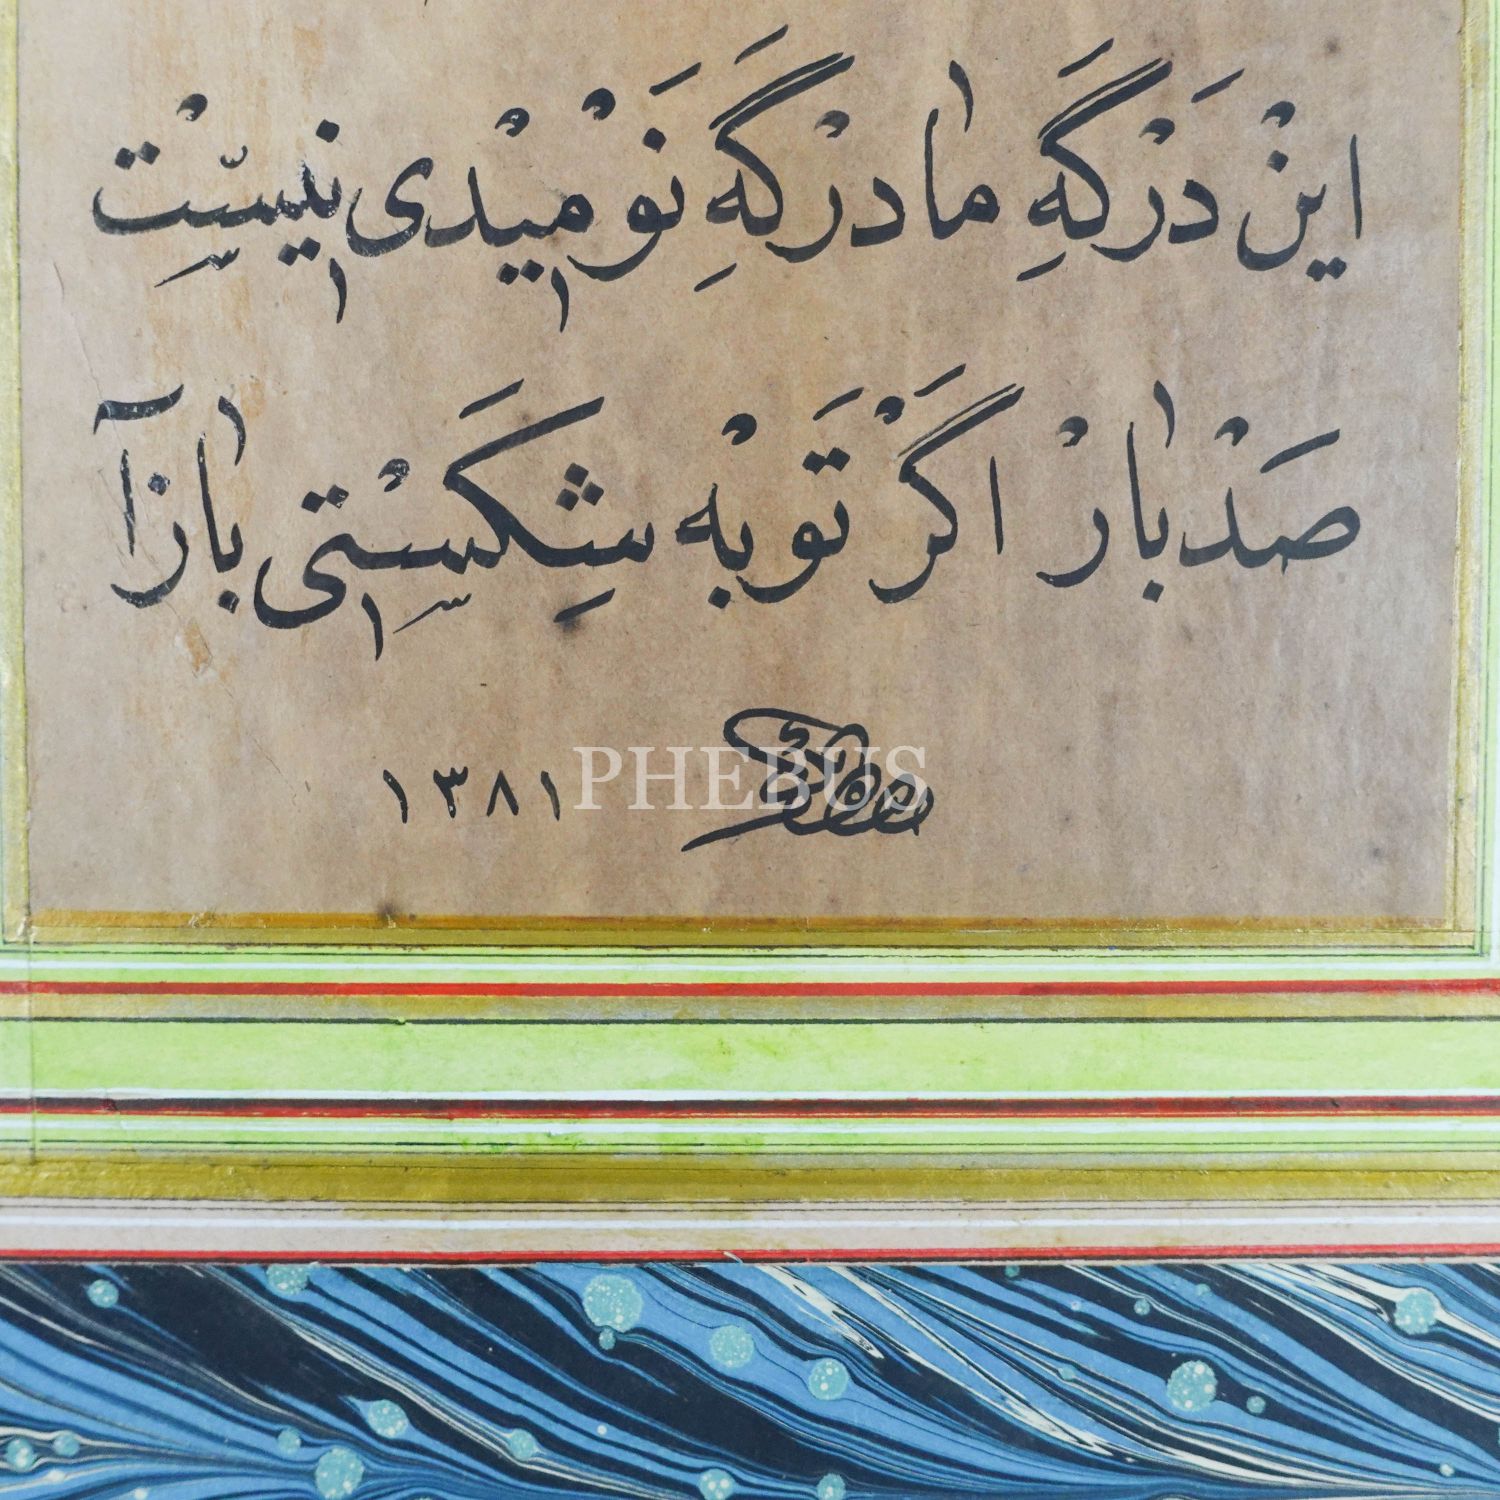 اینْ دَرْگَهِ مٰا دَرْگَهِ نَوْمیْدی نیسْت
صَدْ بٰارْ اَگَرْ تَوْبْه شِکَسْتی بٰازْآ
١٣٨١
PHEBUS